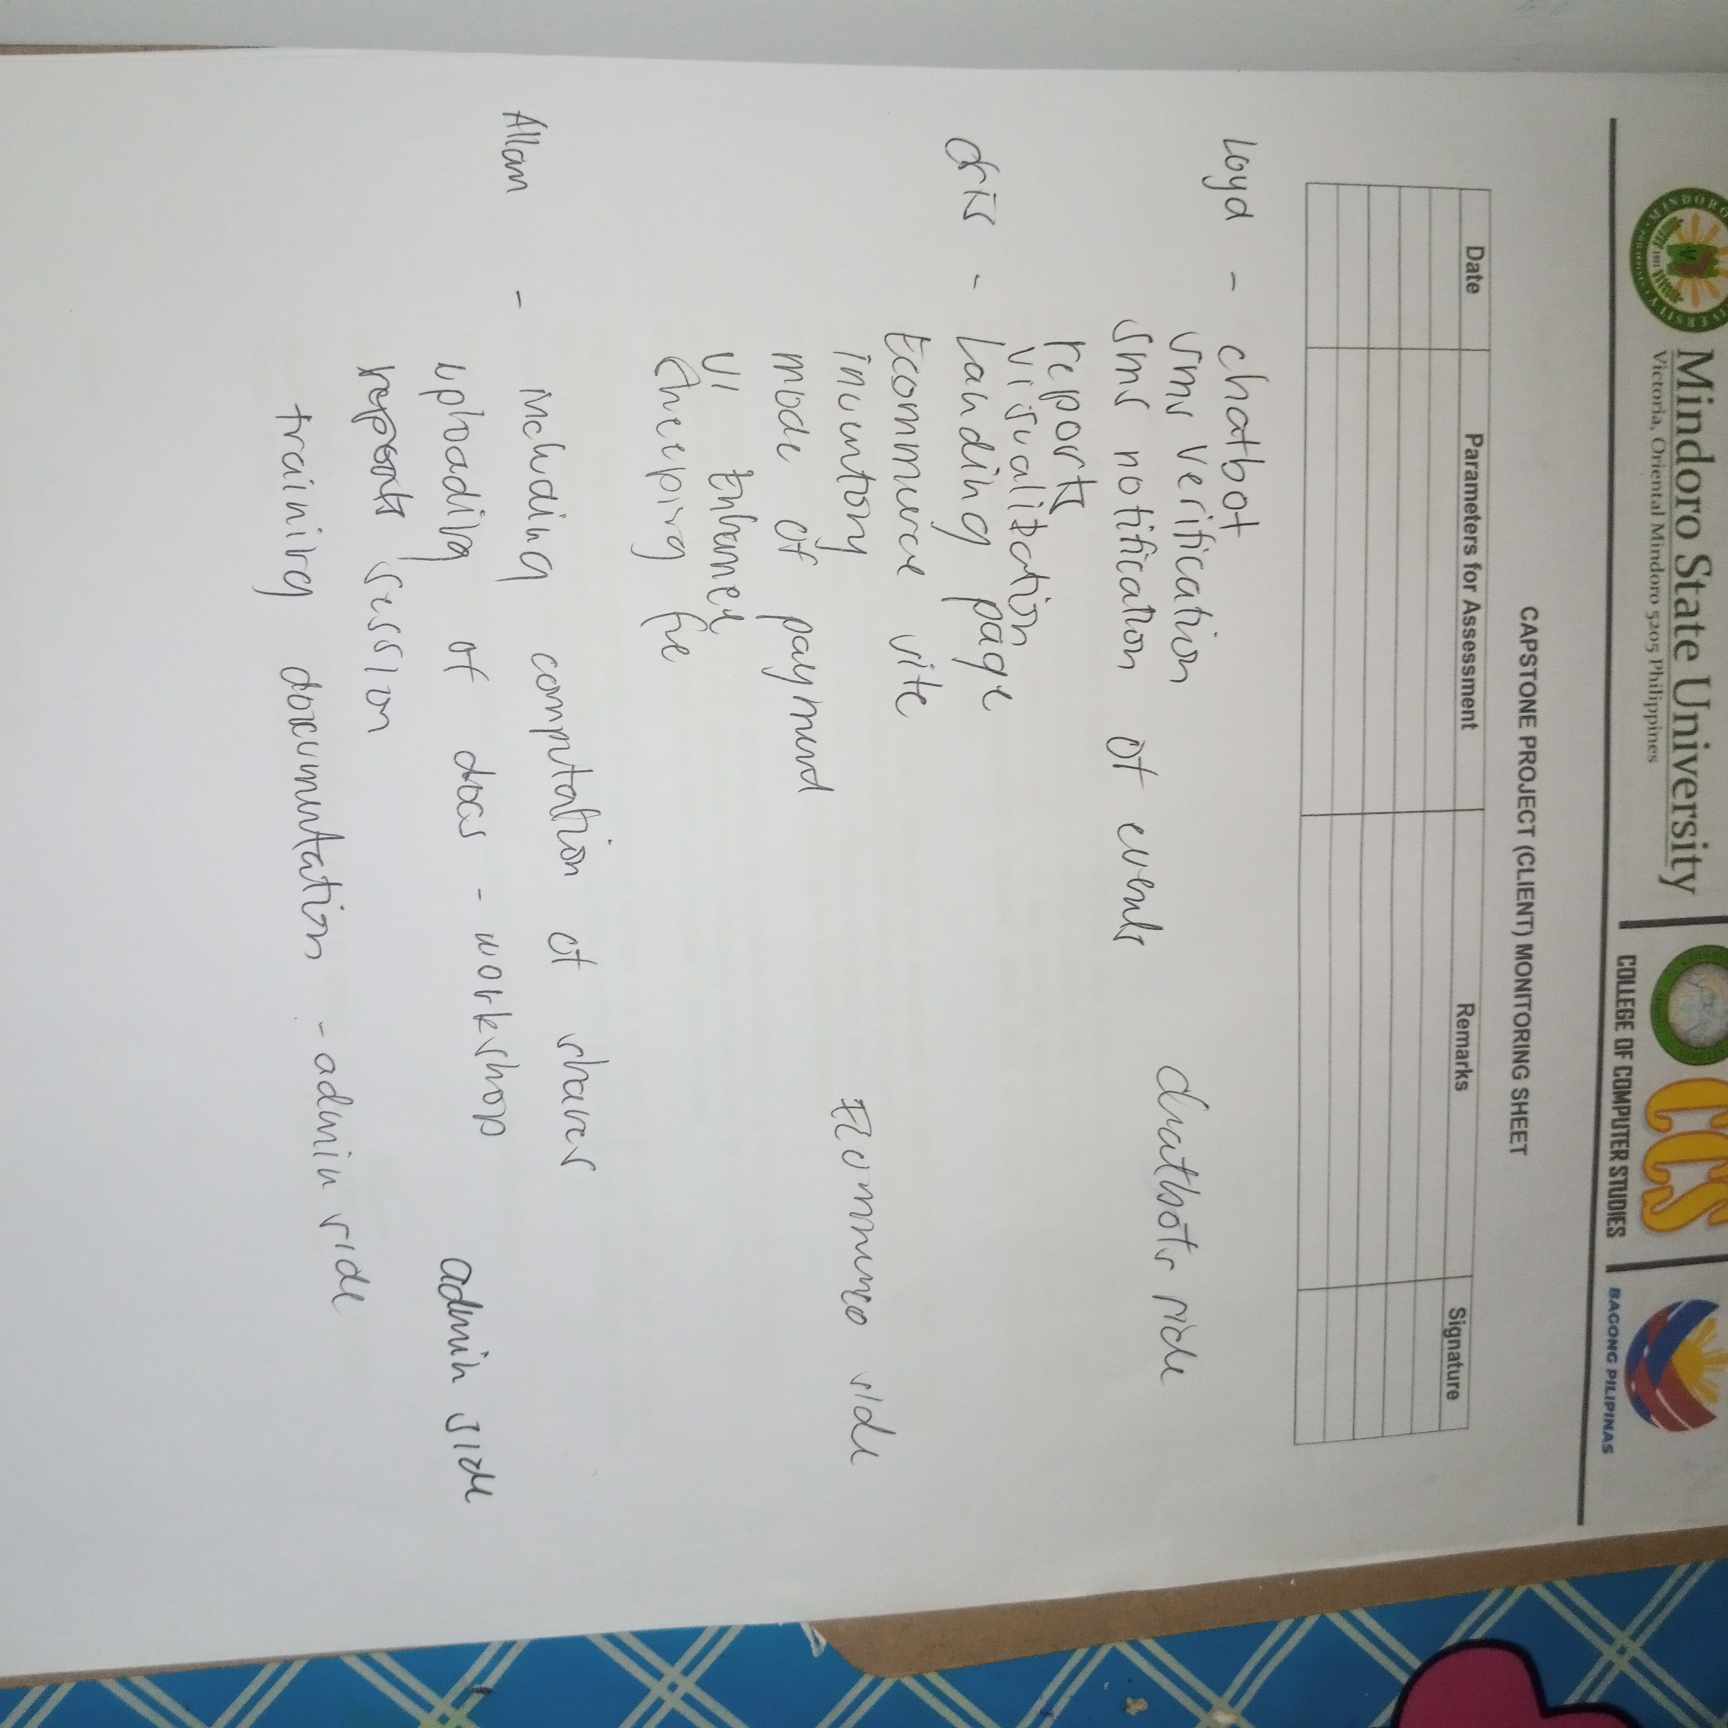 Mindoro State University
Victoria, Oriental Mindoro 5205 Philippines
CCS
COLLEGE OF COMPUTER STUDIES
BAGONG PILIPINAS
CAPSTONE PROJECT (CLIENT) MONITORING SHEET
Date Parameters for Assessment Remarks Signature
Loyd - chatbot
sms verification
chatbots side
sms notification of events
reports
visualization
cris - Landing page
Ecommerce site
inventory
Ecommerce side
mode of payment
UI Enhance
sheeping fee
Allan - including computation of shares
uploading of docs - workshop
admin side
reports session
training documentation - admin side